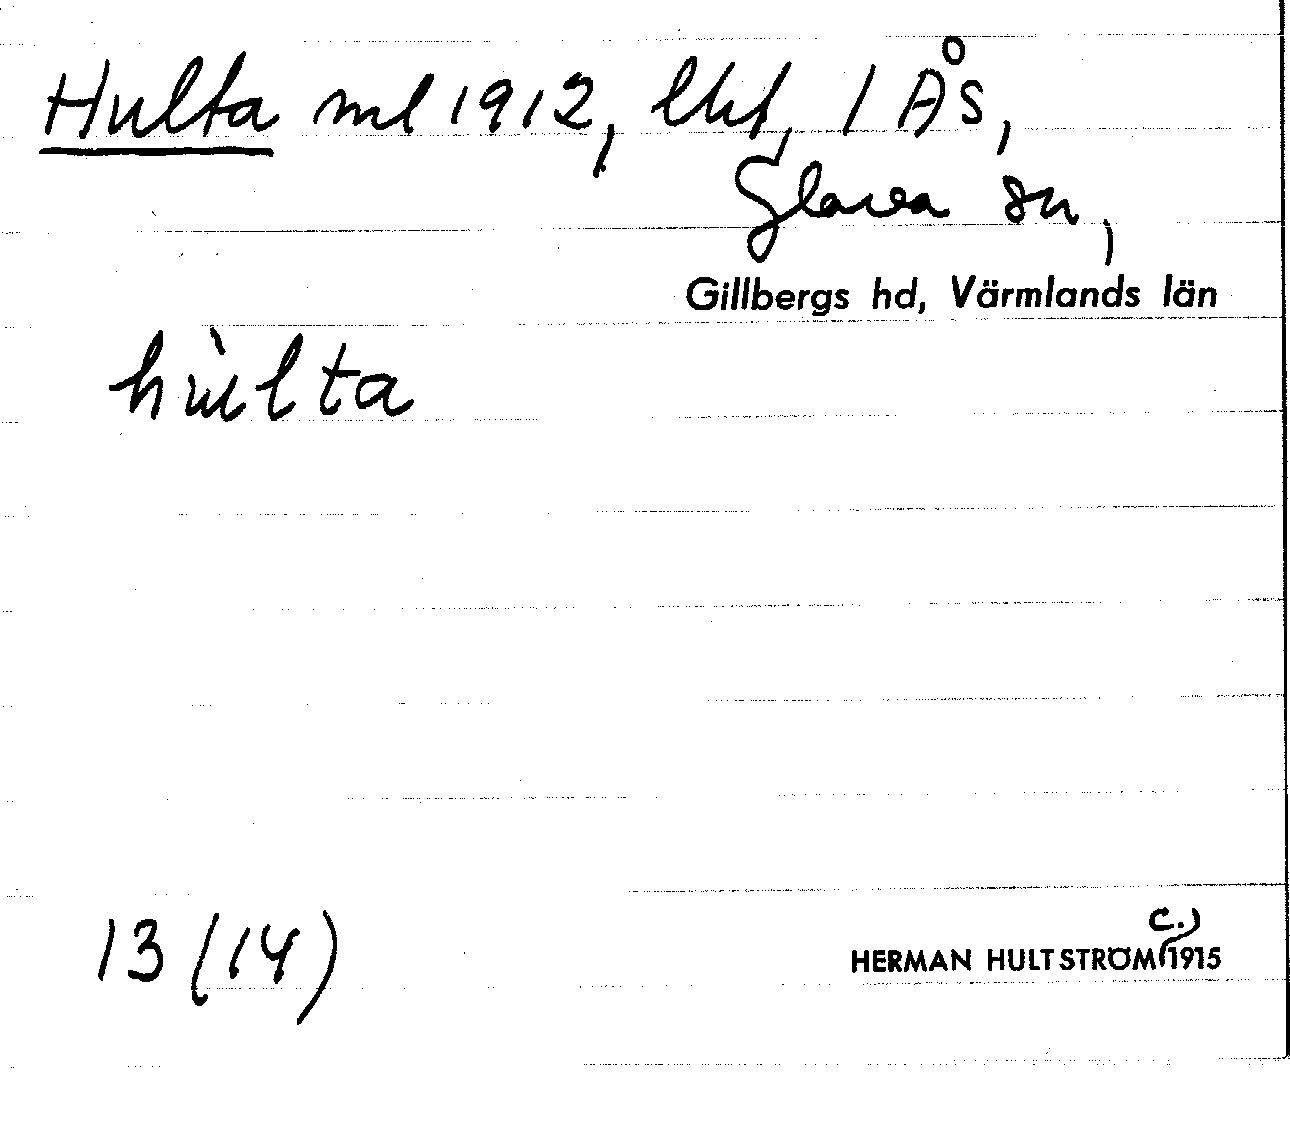 Hulta ml 1912, lht, 1 ÅS,
Glava sn,
Gillbergs hd, Värmlands län
hùlta
13 (14)
HERMAN HULTSTRÖM (c.) 1915